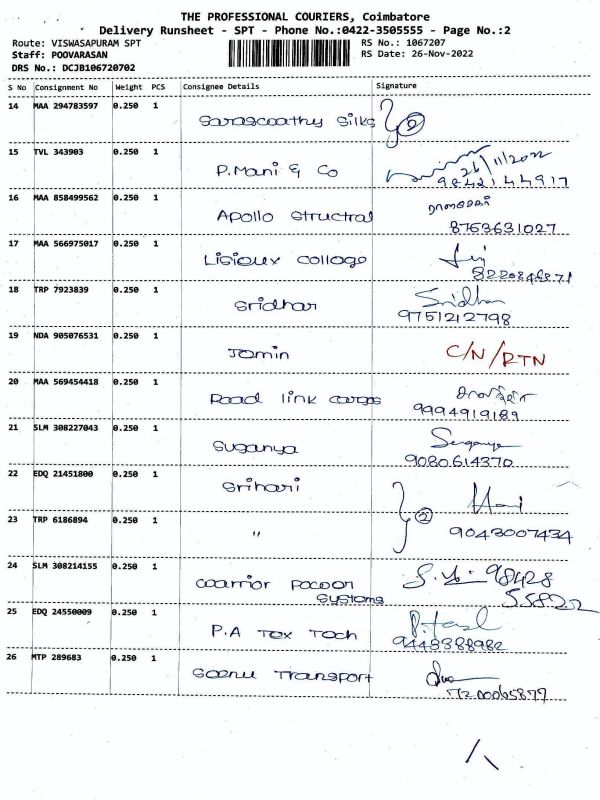 THE PROFESSIONAL COURIERS, Coimbatore
Delivery Runsheet - SPT - Phone No.:0422-3505555 - Page No.:2
Route: VISWASAPURAM SPT
RS No.: 1067207
Staff: POOVARASAN
RS Date: 26-Nov-2022
DRS No.: DCJB106720702
S No Consignment No Weight PCS Consignee Details Signature
14 MAA 294783597 0.250 1 Saraswathy Silks 2
15 TVL 343903 0.250 1 P.Mani & Co 26/11/2022
9842144917
16 MAA 858499562 0.250 1 Apollo Structral
8763631027
17 MAA 566975017 0.250 1 Lisioux college
18 TRP 7923839 0.250 1 Sridhar Sridhar
9751212798
19 NDA 905076531 0.250 1 Jomin C/N/RTN
20 MAA 569454418 0.250 1 Road link cargo
9994919189
21 SLM 308227043 0.250 1 Suganya Suganya
9080614370
22 EDQ 21451800 0.250 1 Srihari
2
23 TRP 6186894 0.250 1 "
9043007434
24 SLM 308214155 0.250 1 warrior power 98428
systems 55822
25 EDQ 24550009 0.250 1 P.A Tex Tech
9443388982
26 MTP 289683 0.250 1 Seenu Transport